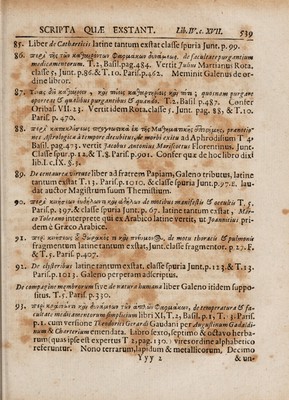 SCRIPTA QUÆ EXSTANT. Lib. IV. c. XVII. 539
85. Liber de Catharticis latine tantum exstat classe spuria Junt. p. 99.
86. περὶ τῆς τῶν καθαιρόντων φαρμάκων δυνάμεως, de facultate purgantium
medicamentorum. T. 2, Basil. pag. 484. Vertit Julius Martianus Rota,
classe 5. Junt. p. 86. & T. 10. Paris. p. 462. Meminit Galenus de or-
dine libror.
87. quosnam purgare
oporteat & qualibus purgantibus & quando. T. 2. Basil. p. 487. Confer
Oribas. VII. 23. Vertit idem Rota, classe 5. Junt. pag. 88, & T. 10.
Paris. p. 470.
88. περὶ κατακλίσεως
nes Astrologicæ à tempore decubitus, de morbi exitu ad Aphrodisium T. 4.
Basil. pag. 473. vertit Jacobus Antonius Mariscotus Florentinus. Junt.
Classe spur. p. 12, & T. 8. Paris. p. 901. Confer quæ de hoc libro dixi
lib. I. c. IX. §. 5.
89. De centaurea virtute liber ad fratrem Papiam, Galeno tributus, latine
tantum exstat T. 13. Paris. p. 1010. & classe spuria Junt. p. 97. E. lau-
dat auctor Magistrum suum Themistium.
90. περὶ κινήσεων de motibus manifestis & occultis T. 5.
Paris. p. 397. & classe spuria Junt. p. 67. latine tantum exstat, Mar-
co Toletano interprete qui ex Arabico latine vertit, ut Joannicius pri-
dem è Græco Arabice.
91. περὶ κινήσεως θώρακος τε καὶ πνεύμονος, de motu thoracis & pulmonis
fragmentum latine tantum exstat, Junt. classe fragmentor. p. 23. F.
& T. 5. Paris p. 407.
92. De clysteribus latine tantum exstat, classe spuria Junt. p. 123. & T. 13.
Paris. p. 1013. Galeno perperam adscriptus.
De compagine membrorum sive de natura humana liber Galeno itidem suppo-
situs. T. 5. Paris p. 330.
93. περὶ κράσεως καὶ δυνάμεως τῶν ἁπλῶν φαρμάκων, de temperatura & fa-
cultate medicamentorum simplicium libri XI, T. 2, Basil. p. 1, T. 13. Paris.
p. 1. cum versione Theodorici Gerardi Gaudani per Augustinum Gadaldi-
num & Charterium emendata. Libro sexto, septimo & octavo herba-
rum (quas ipse est expertus T. 2, pag. 130.) vires ordine alphabetico
referuntur. Nono terrarum, lapidum & metallicorum. Decimo
Yyy 2 & un-